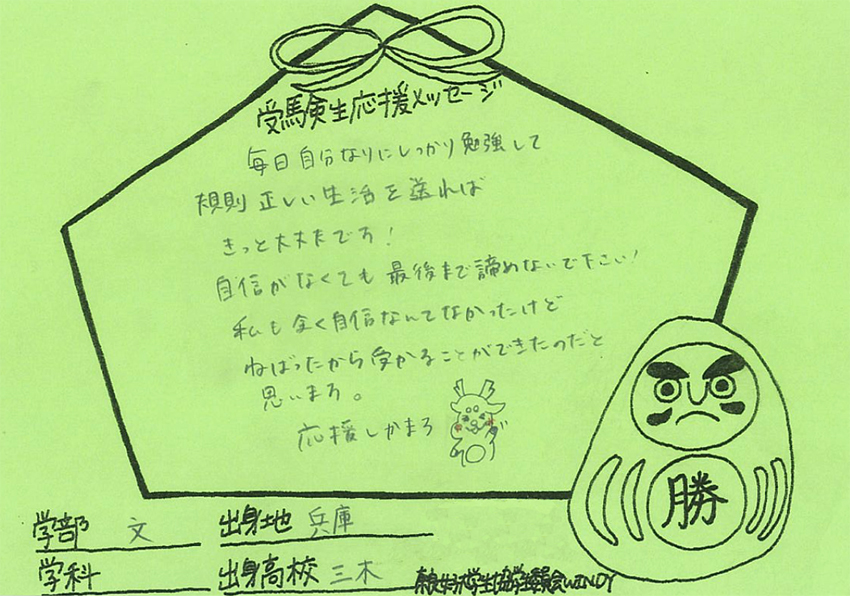 受験生応援メッセージ
毎日自分なりにしっかり勉強して
規則正しい生活を送れば
きっと大丈夫です！
自信がなくても最後まで諦めないで下さい！
私も全く自信なんてなかったけど
ねばったから受かることができたのだと
思います。
応援しかまろ
勝
学部 文 出身地 兵庫
学科 出身高校 三木
奈良女子大学生協学生委員会WINDY